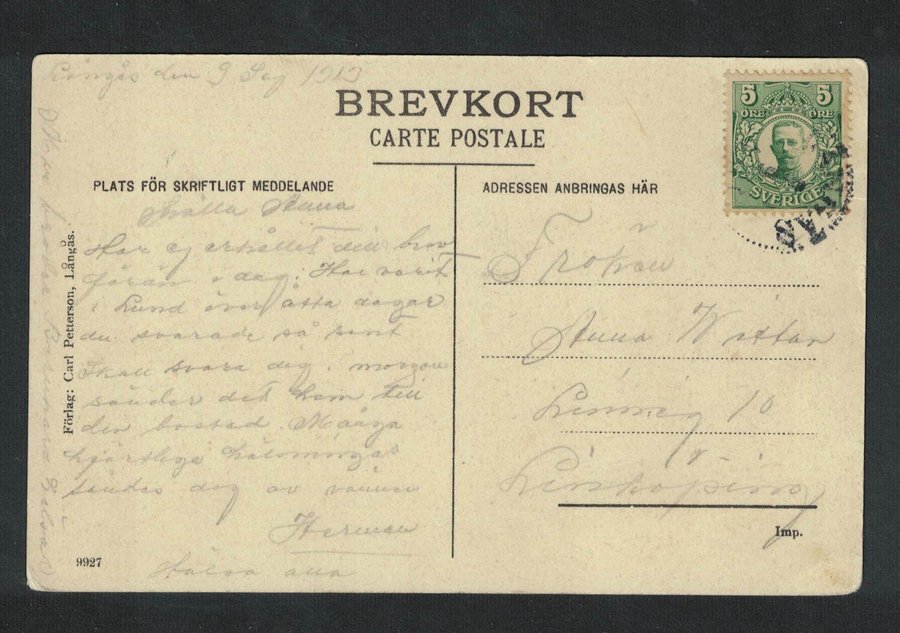 Långås den 9 Sep 1913
BREVKORT
CARTE POSTALE
PLATS FÖR SKRIFTLIGT MEDDELANDE
Snälla Anna
Har ej erhållit ditt brev
förän i dag. Har varit
i Lund över åtta dagar
du svarade så sent
Skall svara dig i morgon
sänder det hem till
den bostad. Många
hjärtliga hälsningar
sändes dig av vännen
Herman
Hälsa alla
Förlag: Carl Petterson, Långås.
9927
ADRESSEN ANBRINGAS HÄR
Fröken
Anna
10
Linköping
Imp.
5 5
ÖRE ÖRE
SVERIGE